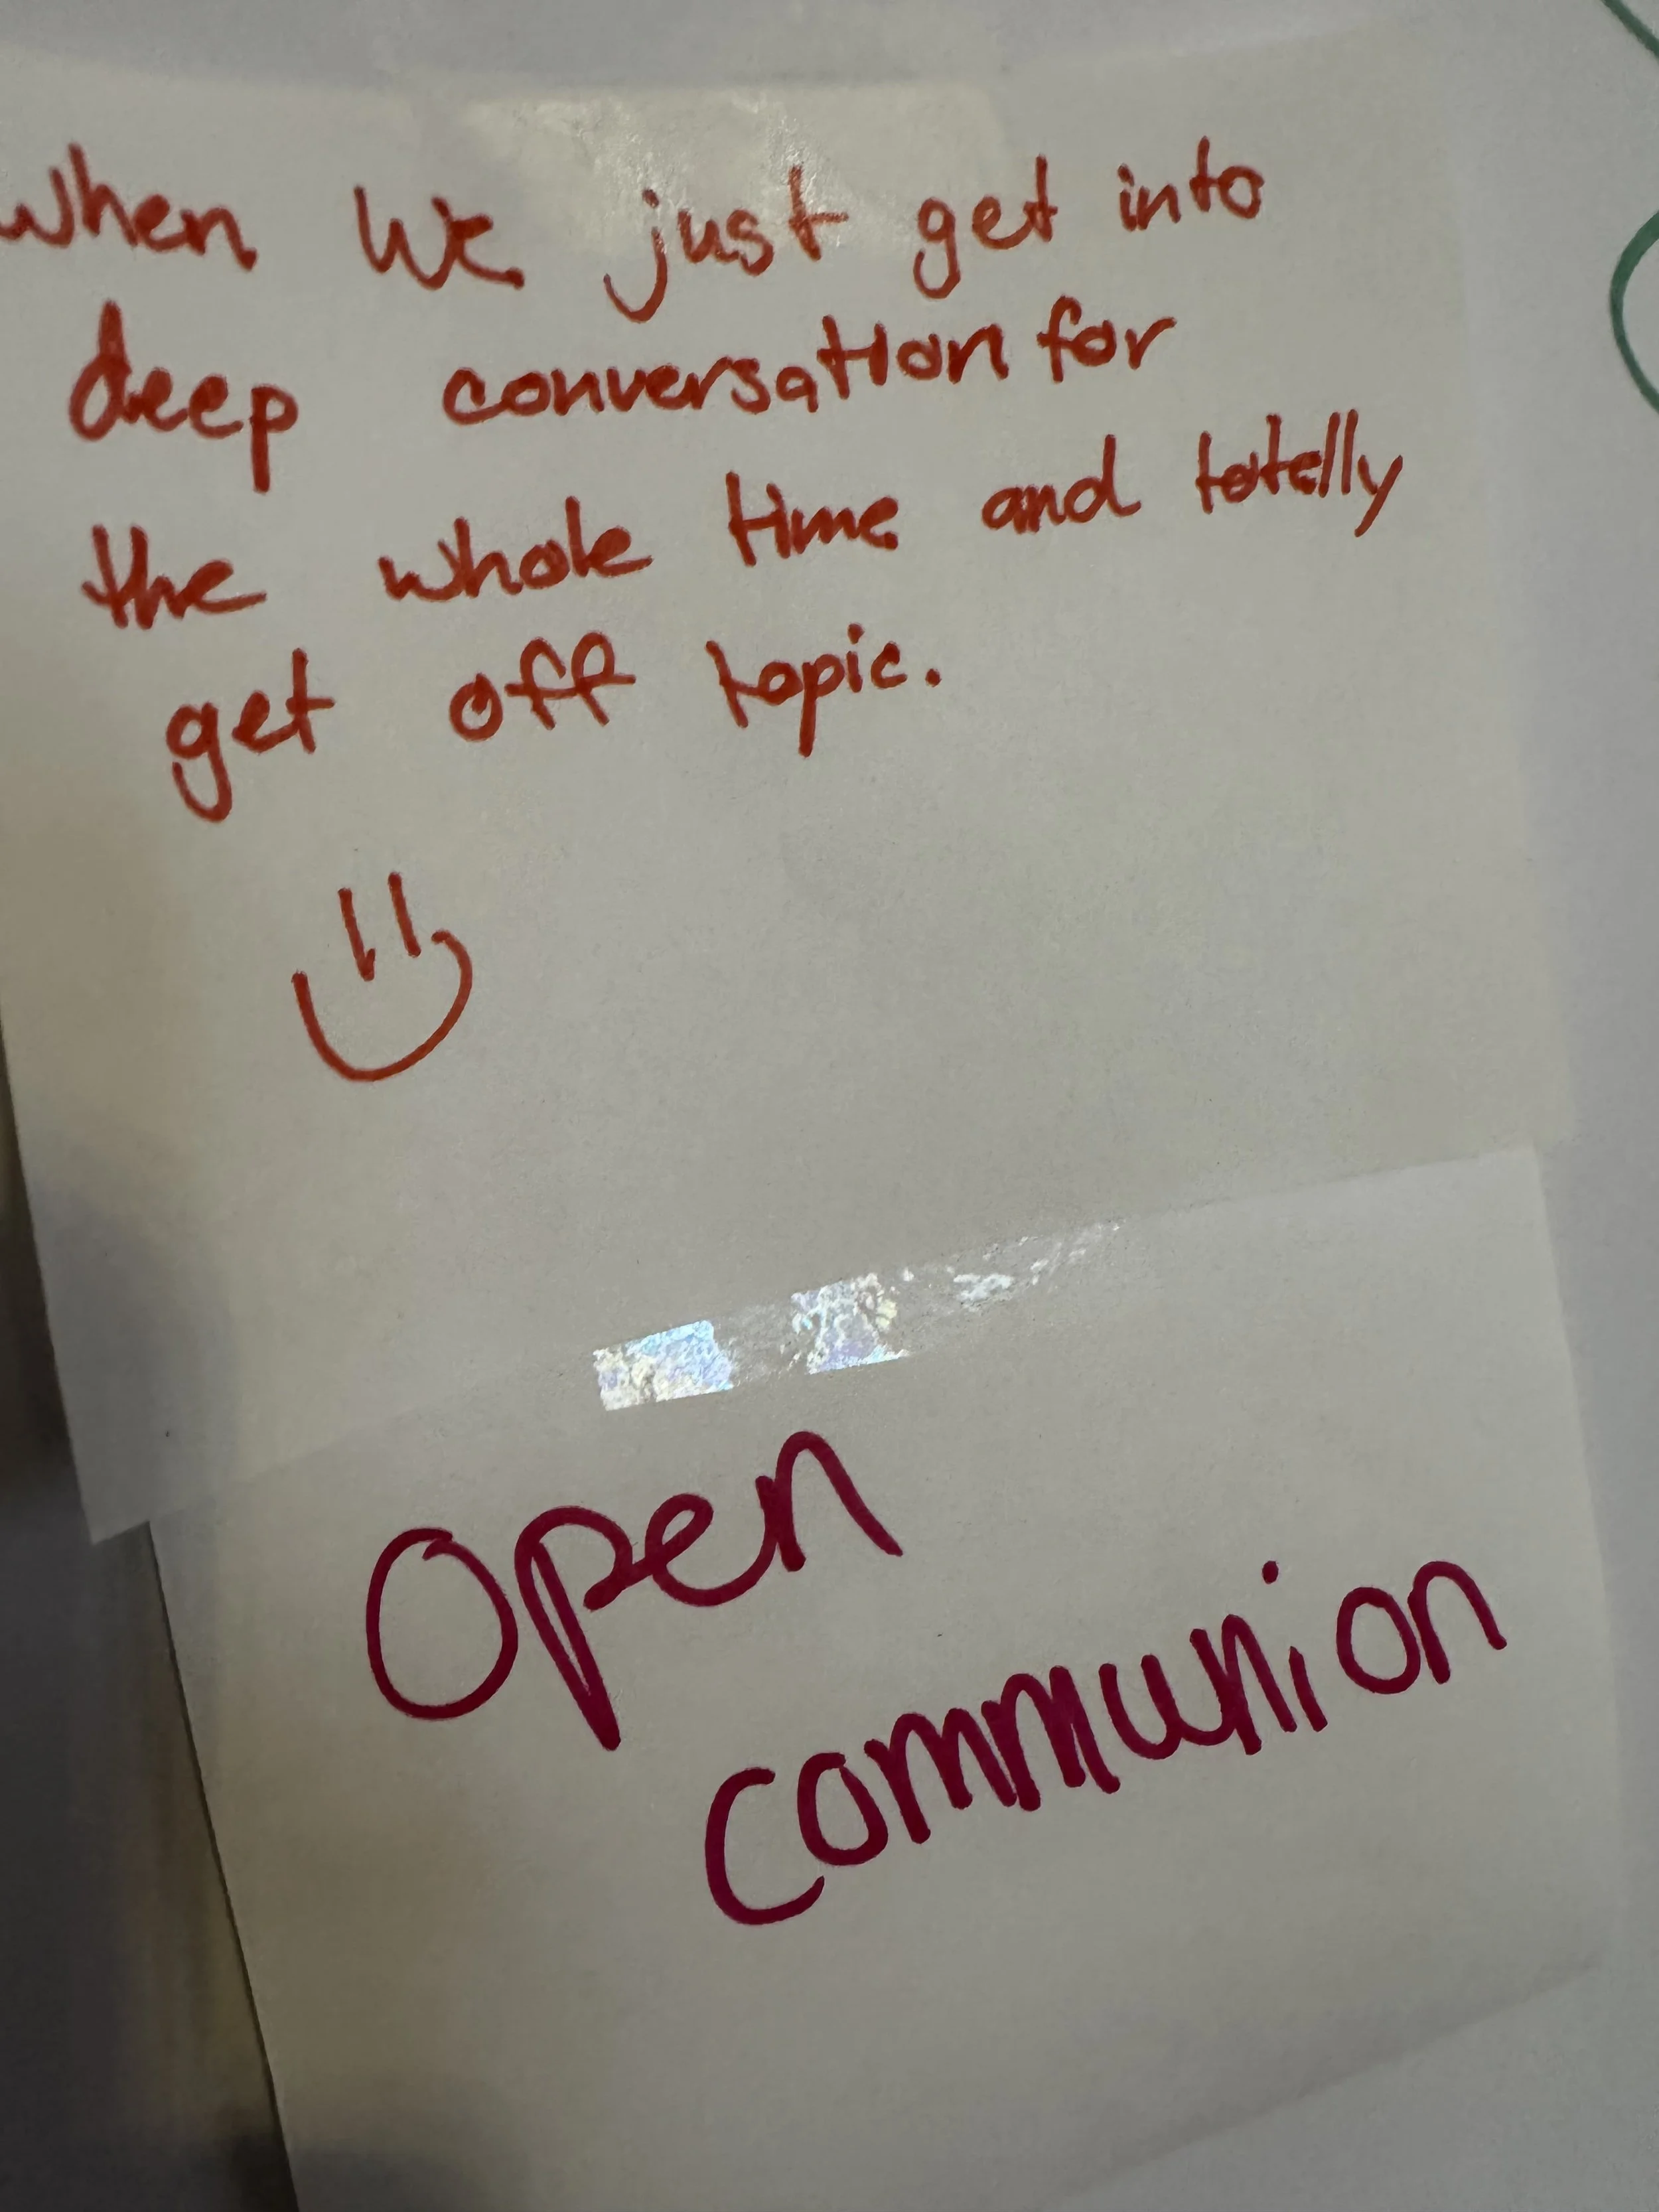 when we just get into
deep conversation for
the whole time and totally
get off topic.
Open
communion